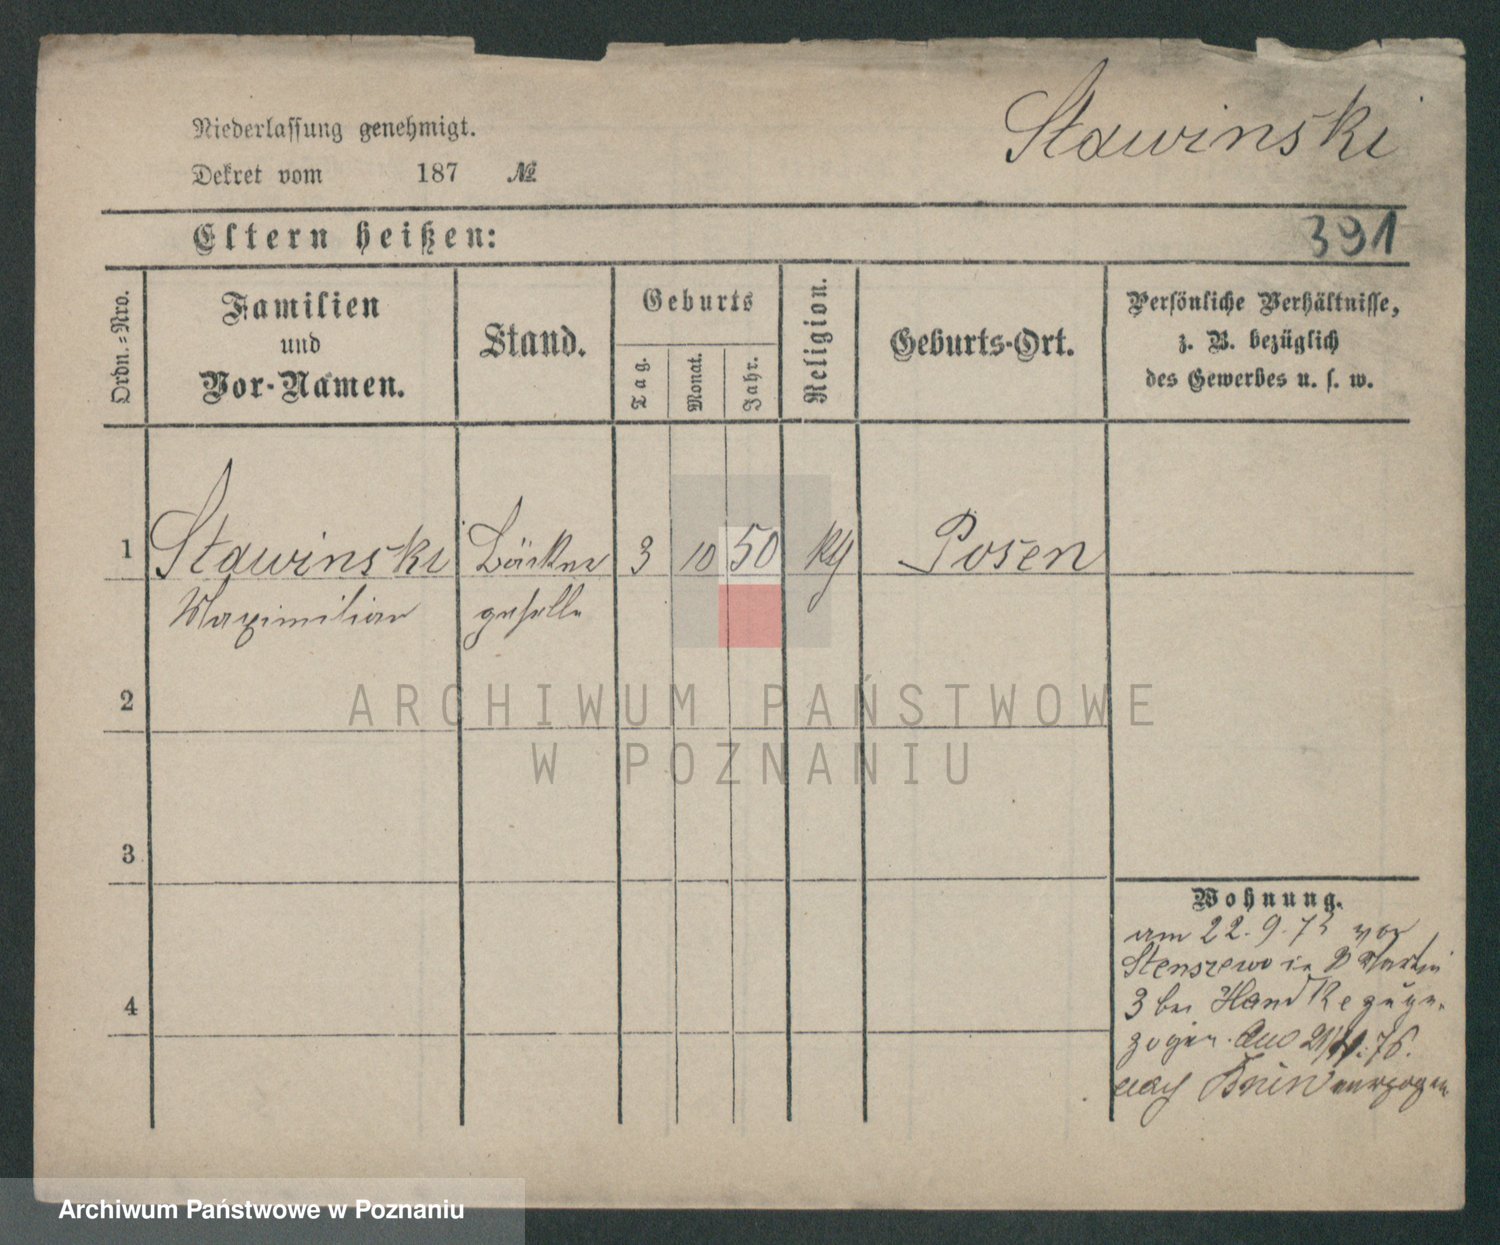 Stawinski
Niederlassung genehmigt.
Dekret vom 187 №
Eltern heißen:
391
Ordn.-Nro.
Familien
und
Vor-Namen.
Stand.
Geburts
Tag.
Monat.
Jahr.
Religion.
Geburts-Ort.
Persönliche Verhältnisse,
z. B. bezüglich
des Gewerbes u. s. w.
1 Stawinski Bäcker 3 10 50 Posen
Maximilian geselle
2
ARCHIWUM PAŃSTWOWE
W POZNANIU
3
Wohnung.
am 22. 9. 75 von
Stenszewo in
4
3 bei
zogen. 76.
nach verzogen
Archiwum Państwowe w Poznaniu